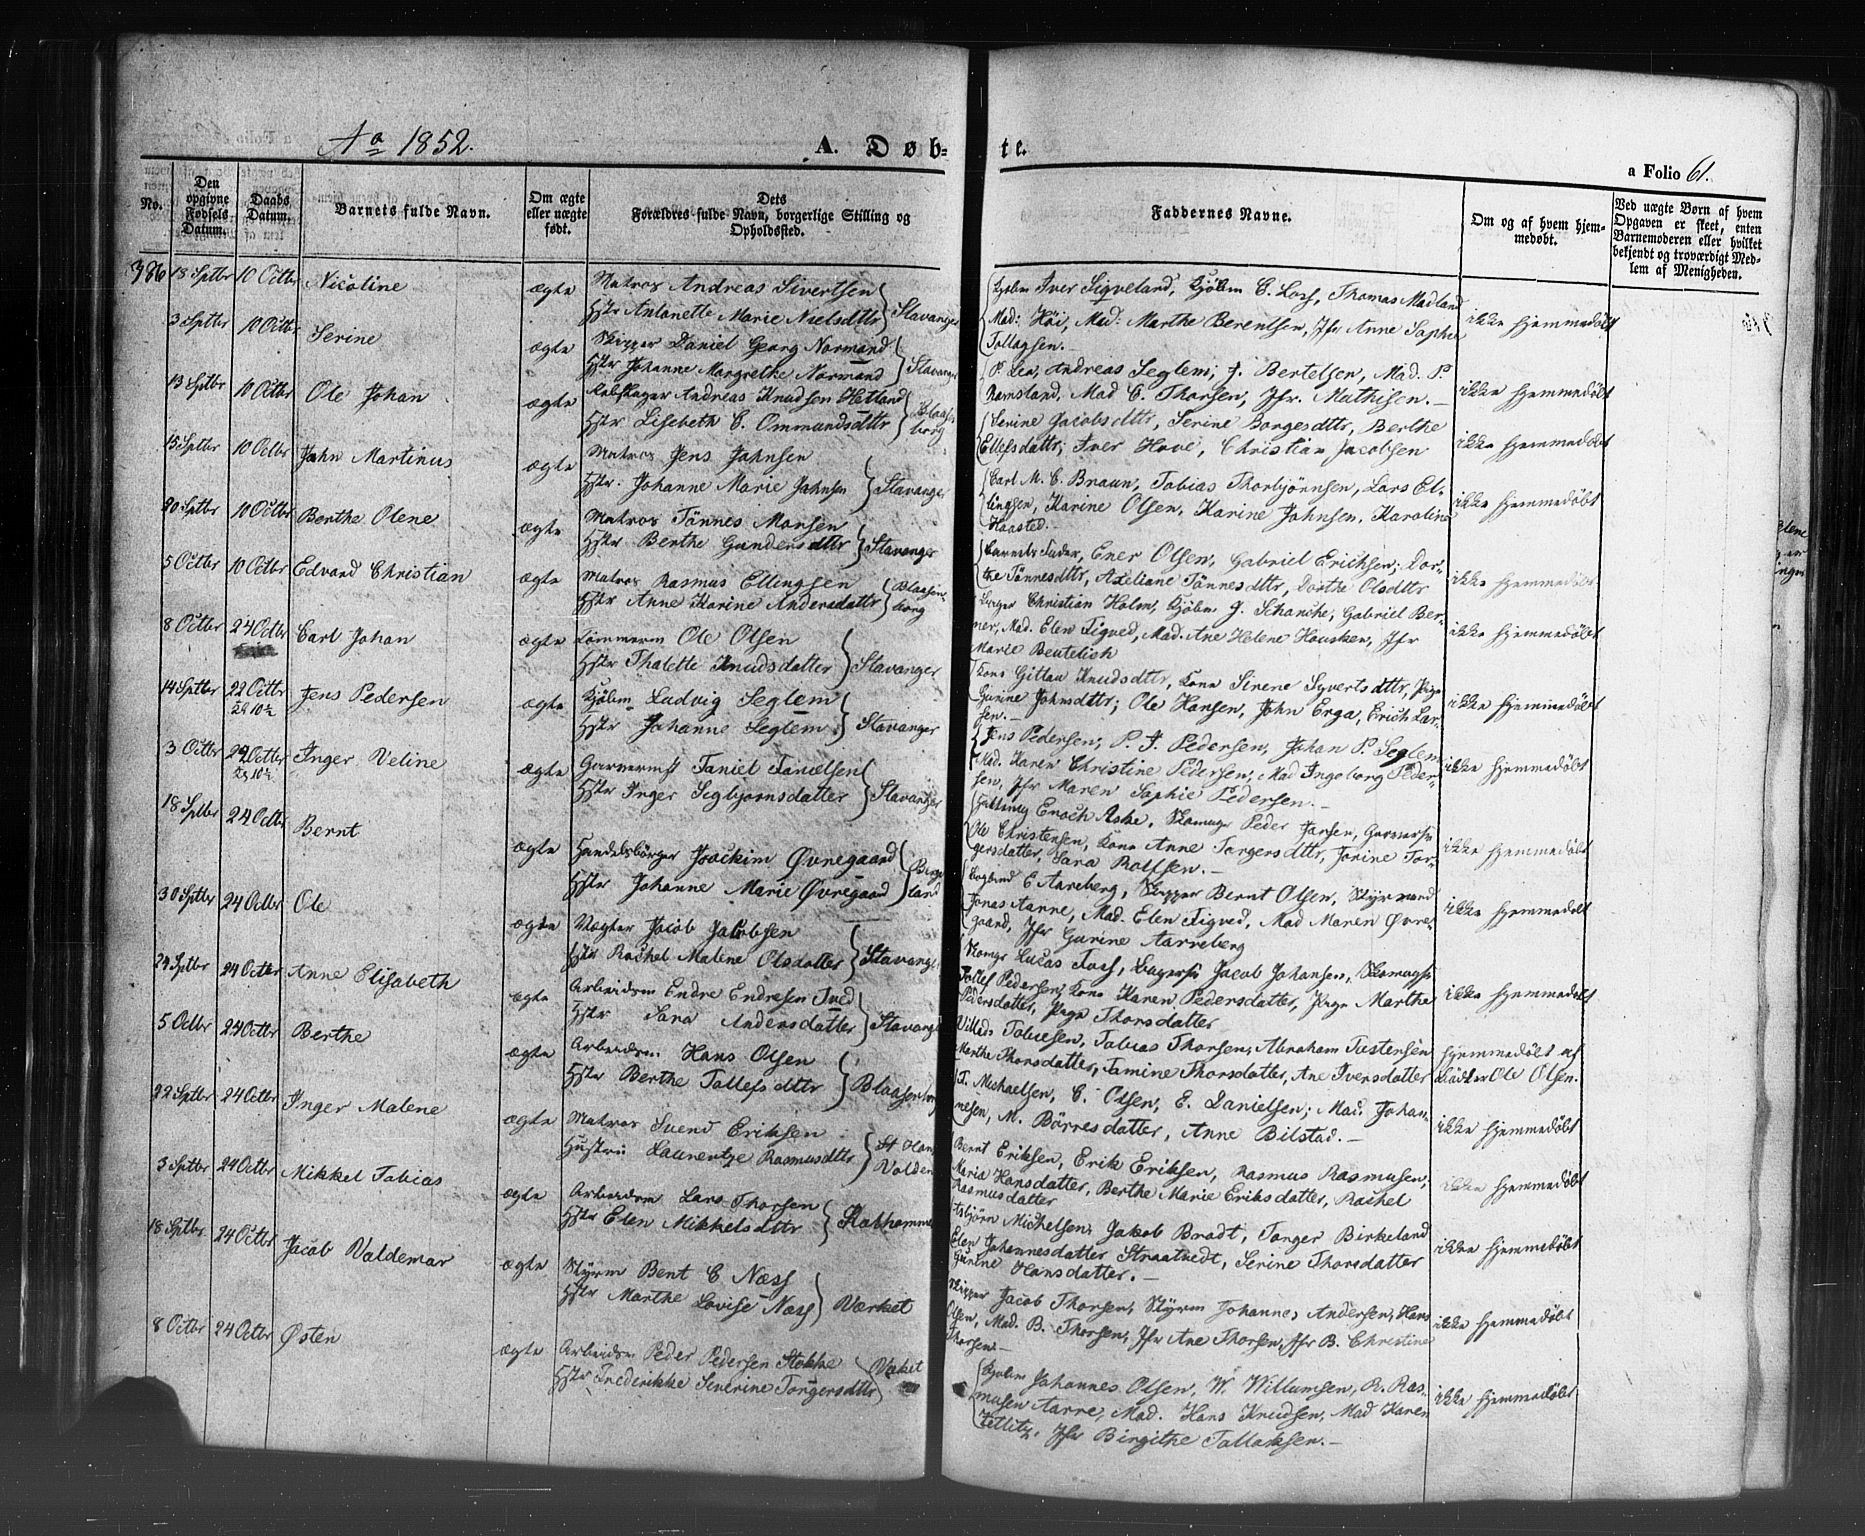 Aº 1852.
A. Døb-
te.
a Folio 61.
No.
Den opgivne Fødsels Datum.
Daabs Datum.
Barnets fulde Navn.
Om ægte eller uægte født.
Dets Forældres fulde Navn, borgerlige Stilling og Opholdssted.
Faddernes Navne.
Om og af hvem hjemmedøbt.
Ved uægte Børn af hvem Opgaven er skeet, enten Barnemoderen eller hvilket bekjendt og troværdigt Medlem af Menigheden.
386 18 Sptbr 10 Octbr Nicoline ægte Matros Andreas Sivertsen
Hstr Antonette Marie Nielsdttr Stavanger
Kjøbm Iver Sigveland, Kjøbm C. Loss, Thomas Madland
Mad: Høi, Mad: Marthe Berentsen, Jfr Anne Sophie
Tollagsen.
ikke hjemmedøbt
3 Sptbr 10 Octbr Serine ægte Skipper Daniel Georg Normand
Hstr Johanne Margrethe Normand Stavanger
P. Lea, Andreas Seglem, J. Bertelsen, Mad. P.
Ramsland, Mad C. Thorsen, Jfr. Mathisen.
ikke hjemmedøbt
13 Sptbr 10 Octbr Ole Johan ægte Rebslager Andreas Knudsen Hetland
Hstr Lisebeth C. Ommundsdttr Blaasenborg
Serine Jacobsdttr, Serine Borgesdttr, Berthe
Ellefsdatter, Iver Hove, Christian Jacobsen
ikke hjemmedøbt
15 Sptbr 10 Octbr John Martinus ægte Matros Jens Jahnsen
Hstr. Johanne Marie Jahnsen Stavanger
Carl M. C. Braun, Tobias Thorbjørnsen, Lars El-
lingsen, Karine Olsen, Karine Johnsen, Karoline
Haasted.
ikke hjemmedøbt
20 Sptbr 10 Octbr Berthe Olene ægte Matros Tönnes Monsen
Hstr Berthe Gundersdttr Stavanger
Barnets Fader, Ener Olsen, Gabriel Erichsen, Dor-
the Tönnesdttr, Axeliane Tönnesdttr, Dorthe Olsdttr
ikke hjemmedøbt
5 Octbr 10 Octbr Edvard Christian ægte Matros Rasmus Ellingsen
Hstr Anne Karine Andersdatter Blaasenborg
Christian Holm, Kjøbm J. Schanche, Gabriel Ber-
ner, Mad. Elen Sigved, Mad. Ane Helene Hausken, Jfr
Marie Beutelich
ikke hjemmedøbt
8 Octbr 24 Octbr Carl Johan ægte Tömmerm Ole Olsen
Hstr Thalette Knudsdatter Stavanger
Kone Gitlau Knudsdttr, Kone Sirene Syvertsdttr, Pige
Gurine Johnsdttr; Ole Hansen, John Erga, Erich Lar-
sen.
ikke hjemmedøbt
14 Sptbr 22 Octbr Jens Pedersen ægte Kjøbm Ludvig Seglem
Hstr Johanne Seglem Stavanger
Jens Pedersen, P. J. Pedersen, Johan P. Seglem
Mad. Karen Christine Pedersen, Mad Ingeborg Peder-
sen, Jfr Maren Sophie Pedersen.
ikke hjemmedøbt
3 Octbr 24 Octbr Inger Veline ægte Garverms Taniel Tanielsen
Hstr Inger Segbjørnsdatter Stavanger
Enoch Aske, Skomager Peder Jansen, Garversv
Ole Christensen, Kone Anne Torgersdttr, Jorine Tor-
gersdatter, Sara Rolfsen.
ikke hjemmedøbt
18 Sptbr 24 Octbr Bernt ægte Handelsbörger Joachim Øvregaard
Hstr Johanne Marie Øvregaard
E Aareberg, Skipper Bernt Olsen, Styrmand
Jonas Aanne, Mad. Elen Sigved, Mad Maren Øvre-
gaard, Jfr Gurine Aarreberg
ikke hjemmedøbt
30 Sptbr 24 Octbr Ole ægte Vægter Jacob Jacobsen
Hstr Rachel Malene Olsdatter Stavanger
Lucas Foss, Jacob Johansen,
Tollef Pedersen, Kone Karen Pedersdatter, Pige Marthe
Pedersdatter, Pige Thorsdatter
ikke hjemmedøbt
24 Sptbr 24 Octbr Anne Elisabeth ægte Arbeidsm Endre Endresen Tved
Hstr Sara Andersdatter Stavanger
Villads Tobiesen, Tobias Thorsen, Abraham Tustensen
Marthe Thorsdatter, Tamine Thorsdatter, Ane Iversdatter
hjemmedøbt af
Ole Olsen.
5 Octbr 24 Octbr Berthe ægte Arbeidsm Hans Olsen
Hstr Berthe Tollefsdttr Blaasenborg
T. Michaelsen, C. Olsen, E. Danielsen; Mad. Johan-
nesen, M. Börresdatter, Anne Bilstad.
ikke hjemmedøbt
22 Sptbr 24 Octbr Inger Malene ægte Matros Svend Eriksen
Hustru Laurentze Rasmusdttr St Hans Volden
Bernt Eriksen, Erik Eriksen, Rasmus Rasmusen,
Maria Hansdatter, Berthe Marie Eriksdatter, Rachel
Rasmusdatter
ikke hjemmedøbt
3 Sptbr 24 Octbr Mikkel Tobias ægte Arbeidsm Lars Thorsen
Hstr Elen Mikkelsdttr
Asbjörn Michelsen, Jakob Bradt, Torger Birkeland
Elen Johannesdatter Straatvedt, Serine Thorsdatter
Gunine Hansdatter.
ikke hjemmedøbt
18 Sptbr 24 Octbr Jacob Valdemar ægte Styrm Bent C Næss
Hstr Marthe Lovise Næss Værket
Skipper Jacob Thorsen, Styrm Johannes Andersen, Hans
Olsen, Mad. B. Thorsen, Jfr Ane Thorsen, Jfr B. Christine
Thorsen
ikke hjemmedøbt
8 Octbr 24 Octbr Østen ægte Arbeidsm Peder Pedersen Stokke
Hstr Frederikke Severine Torgersdttr Værket
Kjøbm Johannes Olsen, W. Willumsen, R. Ras-
musen Aarre, Mad. Hans Knudsen, Mad Karen
Zetlitz, Jfr Birgithe Tollaksen.
ikke hjemmedøbt